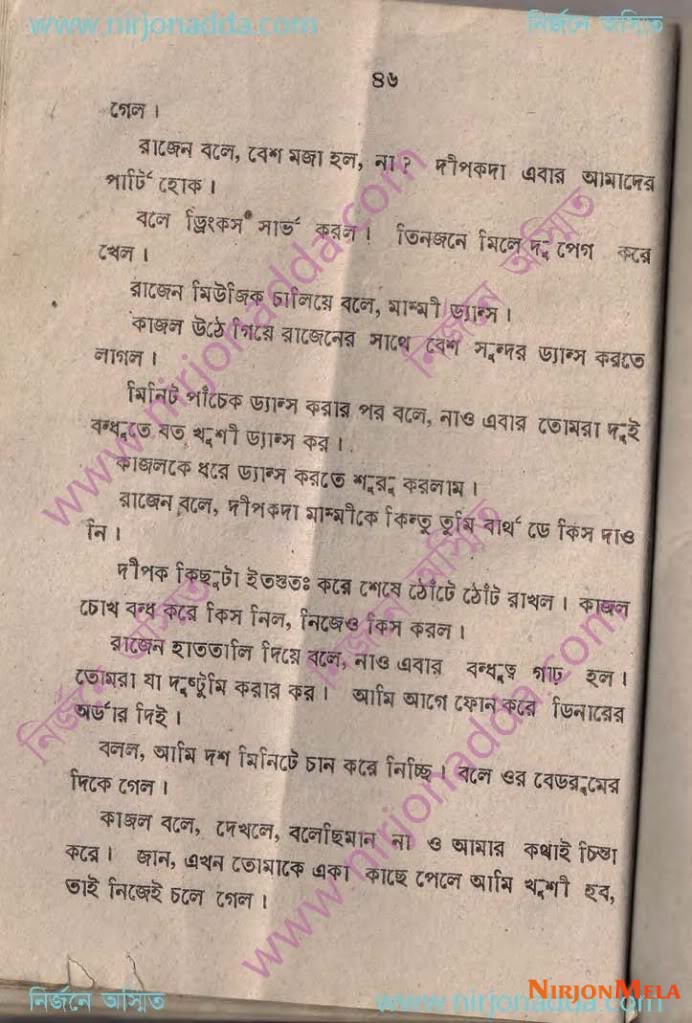 www.nirjonadda.com নির্জনে অস্মিত
৪৬
গেল।
রাজেন বলে, বেশ মজা হল, না? দীপকদা এবার আমাদের
পার্টি হোক।
বলে ড্রিংকস সার্ভ করল। তিনজনে মিলে দু পেগ করে
খেল।
রাজেন মিউজিক চালিয়ে বলে, মাম্মী ড্যান্স।
কাজল উঠে গিয়ে রাজেনের সাথে বেশ সুন্দর ড্যান্স করতে
লাগল।
মিনিট পাঁচেক ড্যান্স করার পর বলে, নাও এবার তোমরা দুই
বন্ধুতে যত খুশী ড্যান্স কর।
কাজলকে ধরে ড্যান্স করতে শুরু করলাম।
রাজেন বলে, দীপকদা মাম্মীকে কিন্তু তুমি বার্থ ডে কিস দাও
নি।
দীপক কিছুটা ইতস্ততঃ করে শেষে ঠোঁটে ঠোঁট রাখল। কাজল
চোখ বন্ধ করে কিস নিল, নিজেও কিস করল।
রাজেন হাততালি দিয়ে বলে, নাও এবার বন্ধুত্ব গাঢ় হল।
তোমরা যা দুষ্টুমি করার কর। আমি আগে ফোন করে ডিনারের
অর্ডার দিই।
বলল, আমি দশ মিনিটে চান করে নিচ্ছি। বলে ওর বেডরুমের
দিকে গেল।
কাজল বলে, দেখলে, বলেছিমান না ও আমার কথাই চিন্তা
করে। জান, এখন তোমাকে একা কাছে পেলে আমি খুশী হব,
তাই নিজেই চলে গেল।
www.nirjonadda.com
নির্জনে অস্মিত
নির্জনে অস্মিত
নির্জনে অস্মিত
www.nirjonadda.com
নির্জনে অস্মিত www.nirjonadda.com
NIRJONMELA